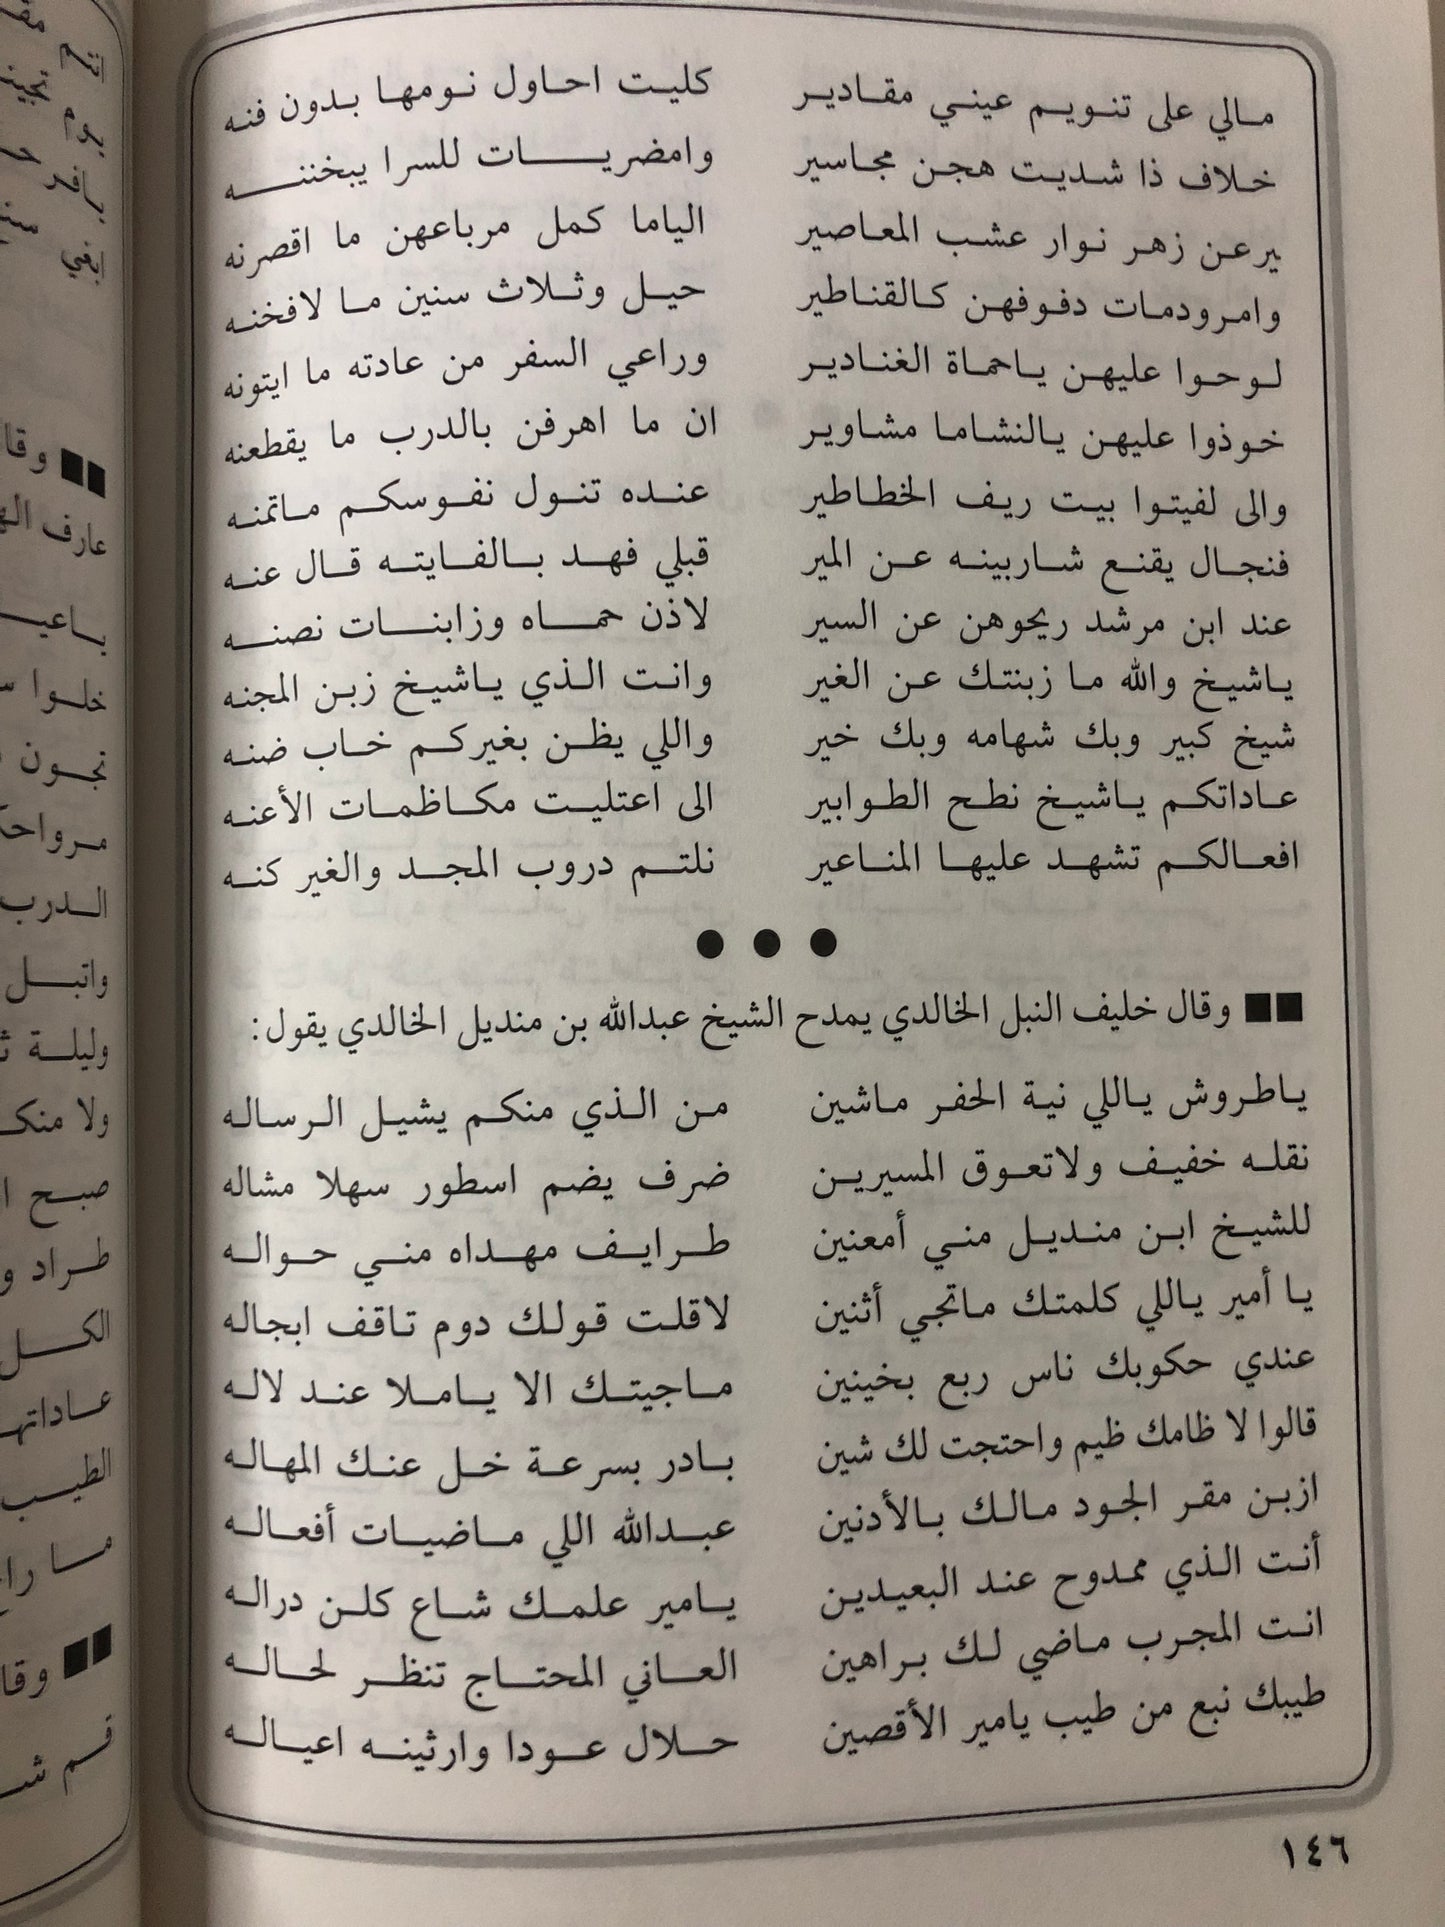 مالي على تنويم عيني مقادير كليت احاول نومها بدون فنه
خلاف ذا شديت هجن مجاسير وامضريات للسرا يبخننه
يرعن زهر نوار عشب المعاصير الياما كمل مرباعهن ما اقصرنه
وامرودمات دفوفهن كالقناطير حيل وثلاث سنين ما لافخنه
لوحوا عليهن ياحماة الغنادير وراعي السفر من عادته ما ايتونه
خوذوا عليهن يالنشاما مشاوير ان ما اهرفن بالدرب ما يقطعنه
والى لفيتوا بيت ريف الخطاطير عنده تنول نفوسكم ماتمنه
فنجال يقنع شاربينه عن المير قبلي فهد بالفايته قال عنه
عند ابن مرشد ريحوهن عن السير لاذن حماه وزابنات نصنه
ياشيخ والله ما زبنتك عن الغير وانت الذي ياشيخ زبن المجنه
شيخ كبير وبك شهامه وبك خير واللي يظن بغيركم خاب ضنه
عاداتكم ياشيخ نطح الطوابير الى اعتليت مكاظمات الأعنه
افعالكم تشهد عليها المناعير نلتم دروب المجد والغير كنه
وقال خليف النبل الخالدي يمدح الشيخ عبدالله بن منديل الخالدي يقول:
ياطروش ياللي نية الحفر ماشين من الذي منكم يشيل الرساله
نقله خفيف ولاتعوق المسيرين ضرف يضم اسطور سهلا مشاله
للشيخ ابن منديل مني أمعنين طرايف مهداه مني حواله
يا أمير ياللي كلمتك ماتجي أثنين لاقلت قولك دوم تاقف ابجاله
عندي حكوبك ناس ربع بخينين ماجيتك الا ياملا عند لاله
قالوا لا ظامك ظيم واحتجت لك شين بادر بسرعة خل عنك المهاله
ازبن مقر الجود مالك بالأدنين عبدالله اللي ماضيات أفعاله
أنت الذي ممدوح عند البعيدين يامير علمك شاع كلن دراله
انت المجرب ماضي لك براهين العاني المحتاج تنظر لحاله
طيبك نبع من طيب يامير الأقصين حلال عودا وارثينه اعياله
١٤٦
وقا
عارف
خلوا
الدرب
واتبل
وليلة
ولا
صبح
طراد
الكل
الطيب
ما
وقا